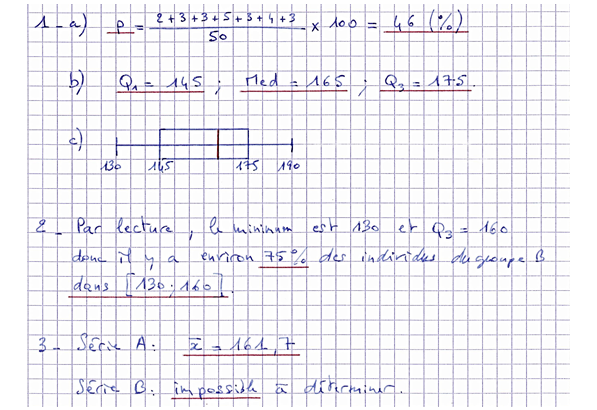 1-a) p = (2+3+3+5+3+4+3)/50 x 100 = 46 (%)
b) Q₁ = 145 ; Med = 165 ; Q₃ = 175.
c)
130 145 175 190
2 - Par lecture, le minimum est 130 et Q₃ = 160
donc il y a environ 75% des individus du groupe B
dans [130 ; 160].
3 - Série A : x̄ = 161,7
Série B : impossible à déterminer.